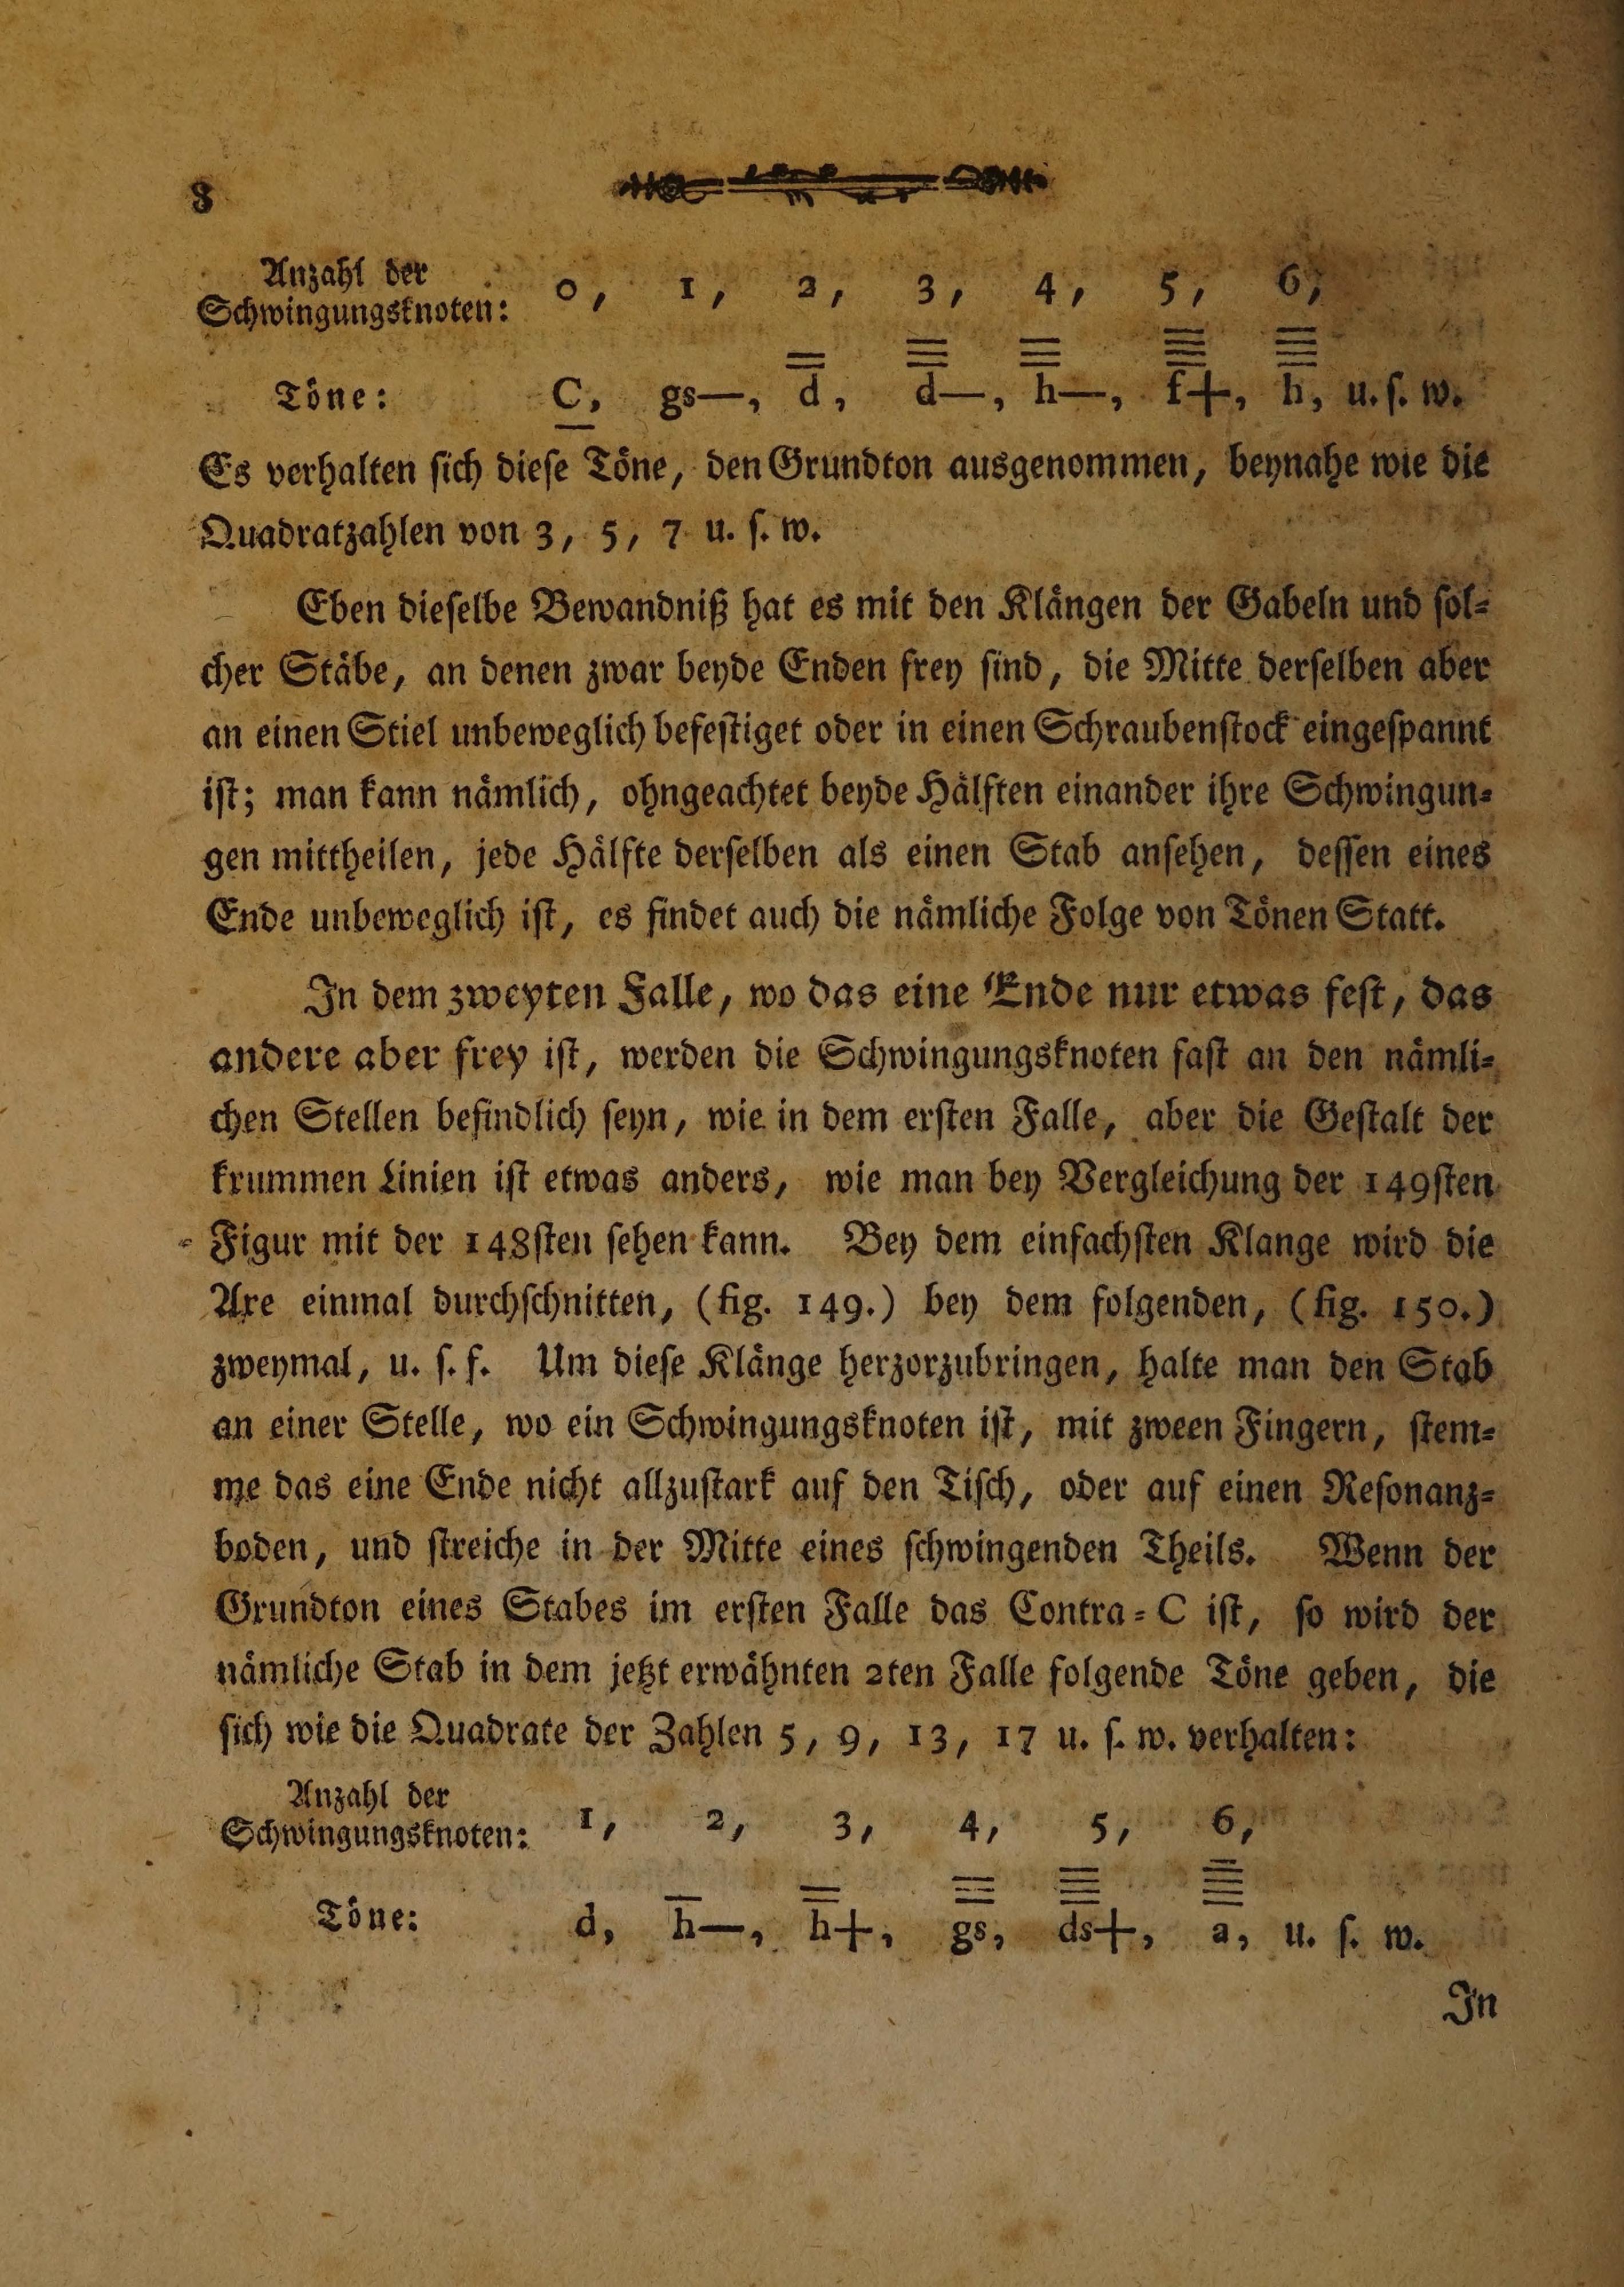 8
Anzahl der
Schwingungsknoten: 0, 1, 2, 3, 4, 5, 6,
Töne: C, gs—, d, d—, h—, f+, h, u. ſ. w.
Es verhalten ſich dieſe Töne, den Grundton ausgenommen, beynahe wie die
Quadratzahlen von 3, 5, 7 u. ſ. w.
Eben dieſelbe Bewandniß hat es mit den Klängen der Gabeln und ſol-
cher Stäbe, an denen zwar beyde Enden frey ſind, die Mitte derſelben aber
an einen Stiel unbeweglich befeſtiget oder in einen Schraubenſtock eingeſpannt
iſt; man kann nämlich, ohngeachtet beyde Hälften einander ihre Schwingun-
gen mittheilen, jede Hälfte derſelben als einen Stab anſehen, deſſen eines
Ende unbeweglich iſt, es findet auch die nämliche Folge von Tönen Statt.
In dem zweyten Falle, wo das eine Ende nur etwas feſt, das
andere aber frey iſt, werden die Schwingungsknoten faſt an den nämli-
chen Stellen befindlich ſeyn, wie in dem erſten Falle, aber die Geſtalt der
krummen Linien iſt etwas anders, wie man bey Vergleichung der 149ſten
Figur mit der 148ſten ſehen kann. Bey dem einfachſten Klange wird die
Axe einmal durchſchnitten, (fig. 149.) bey dem folgenden, (fig. 150.)
zweymal, u. ſ. f. Um dieſe Klänge herzorzubringen, halte man den Stab
an einer Stelle, wo ein Schwingungsknoten iſt, mit zween Fingern, ſtem-
me das eine Ende nicht allzuſtark auf den Tiſch, oder auf einen Reſonanz-
boden, und ſtreiche in der Mitte eines ſchwingenden Theils. Wenn der
Grundton eines Stabes im erſten Falle das Contra-C iſt, ſo wird der
nämliche Stab in dem jetzt erwähnten 2ten Falle folgende Töne geben, die
ſich wie die Quadrate der Zahlen 5, 9, 13, 17 u. ſ. w. verhalten:
Anzahl der
Schwingungsknoten: 1, 2, 3, 4, 5, 6,
Töne: d, h—, h+, gs, ds+, a, u. ſ. w.
In